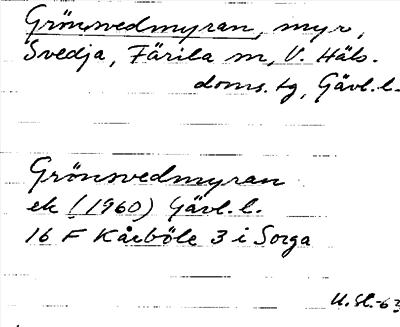 Grönsvedmyran, myr,
Svedja, Färila sn, V. Häls.
doms. tg, Gävl. l.
Grönsvedmyran
ek (1960) Gävl. l.
16 F Kårböle 3 i Sorga
U. St.-63